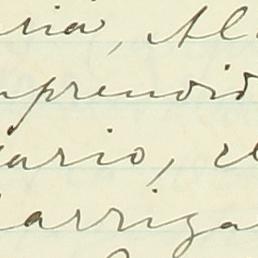 ria, Al
mprendid
ario, el
larriga